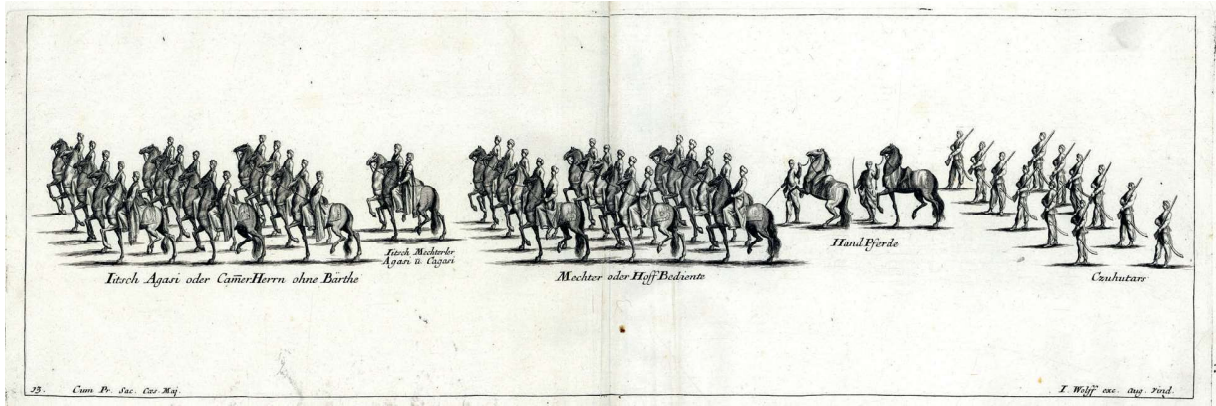 Iitsch Agasi oder Cam̄erHerrn ohne Bärthe
Iitsch Mechterler
Agasi ū Cagasi
Mechter oder Hoff Bediente
Hand Pferde
Czuhutars
13. Cum Pr. Sac. Cæs. Maj.
I. Wolff exc. Aug. Vind.